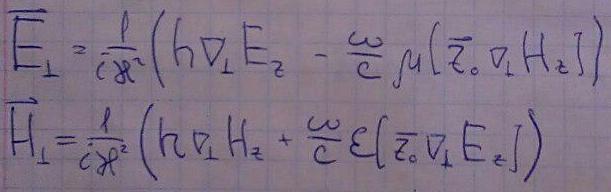 E⃗⊥ = 1/(iϰ²) (h∇⊥E_z − ω/c μ[z⃗₀ ∇⊥H_z])
H⃗⊥ = 1/(iϰ²) (h∇⊥H_z + ω/c ε[z⃗₀ ∇⊥E_z])